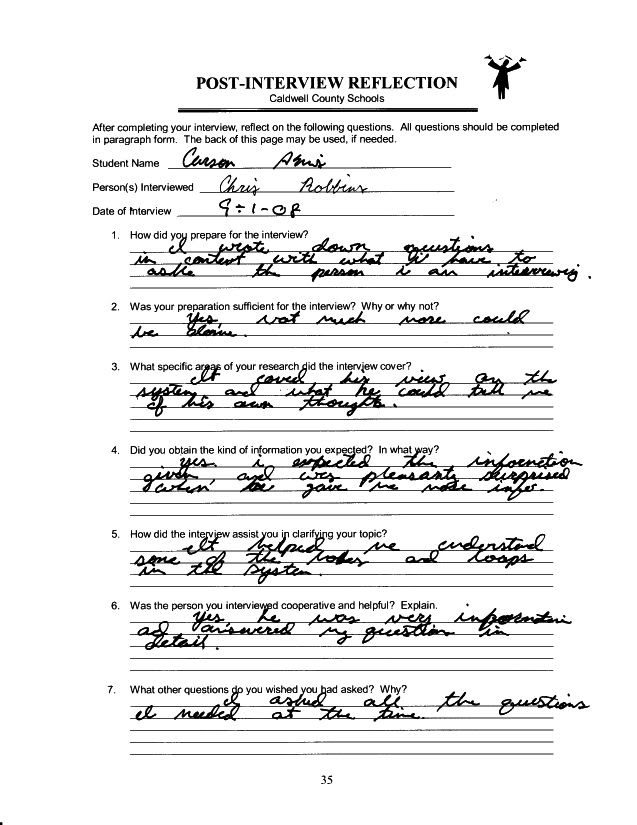 POST-INTERVIEW REFLECTION
Caldwell County Schools
After completing your interview, reflect on the following questions. All questions should be completed
in paragraph form. The back of this page may be used, if needed.
Student Name Carson
Person(s) Interviewed Chris Robbins
Date of Interview 9-1-08
1. How did you prepare for the interview?
I wrote down questions
in context with what I have to
aske the person i am interviewing.
2. Was your preparation sufficient for the interview? Why or why not?
Yes not much more could
be
3. What specific areas of your research did the interview cover?
It coved his view on the
system and what he could tell me
of his own thoughts.
4. Did you obtain the kind of information you expected? In what way?
Yes i expected the
given and was pleasantly surprised
when he gave me more info.
5. How did the interview assist you in clarifying your topic?
It helped me understand
some of the and loops
in the system.
6. Was the person you interviewed cooperative and helpful? Explain.
Yes, he was very
ad answered my question in
detail.
7. What other questions do you wished you had asked? Why?
I asked all the questions
I needed at the time.
35